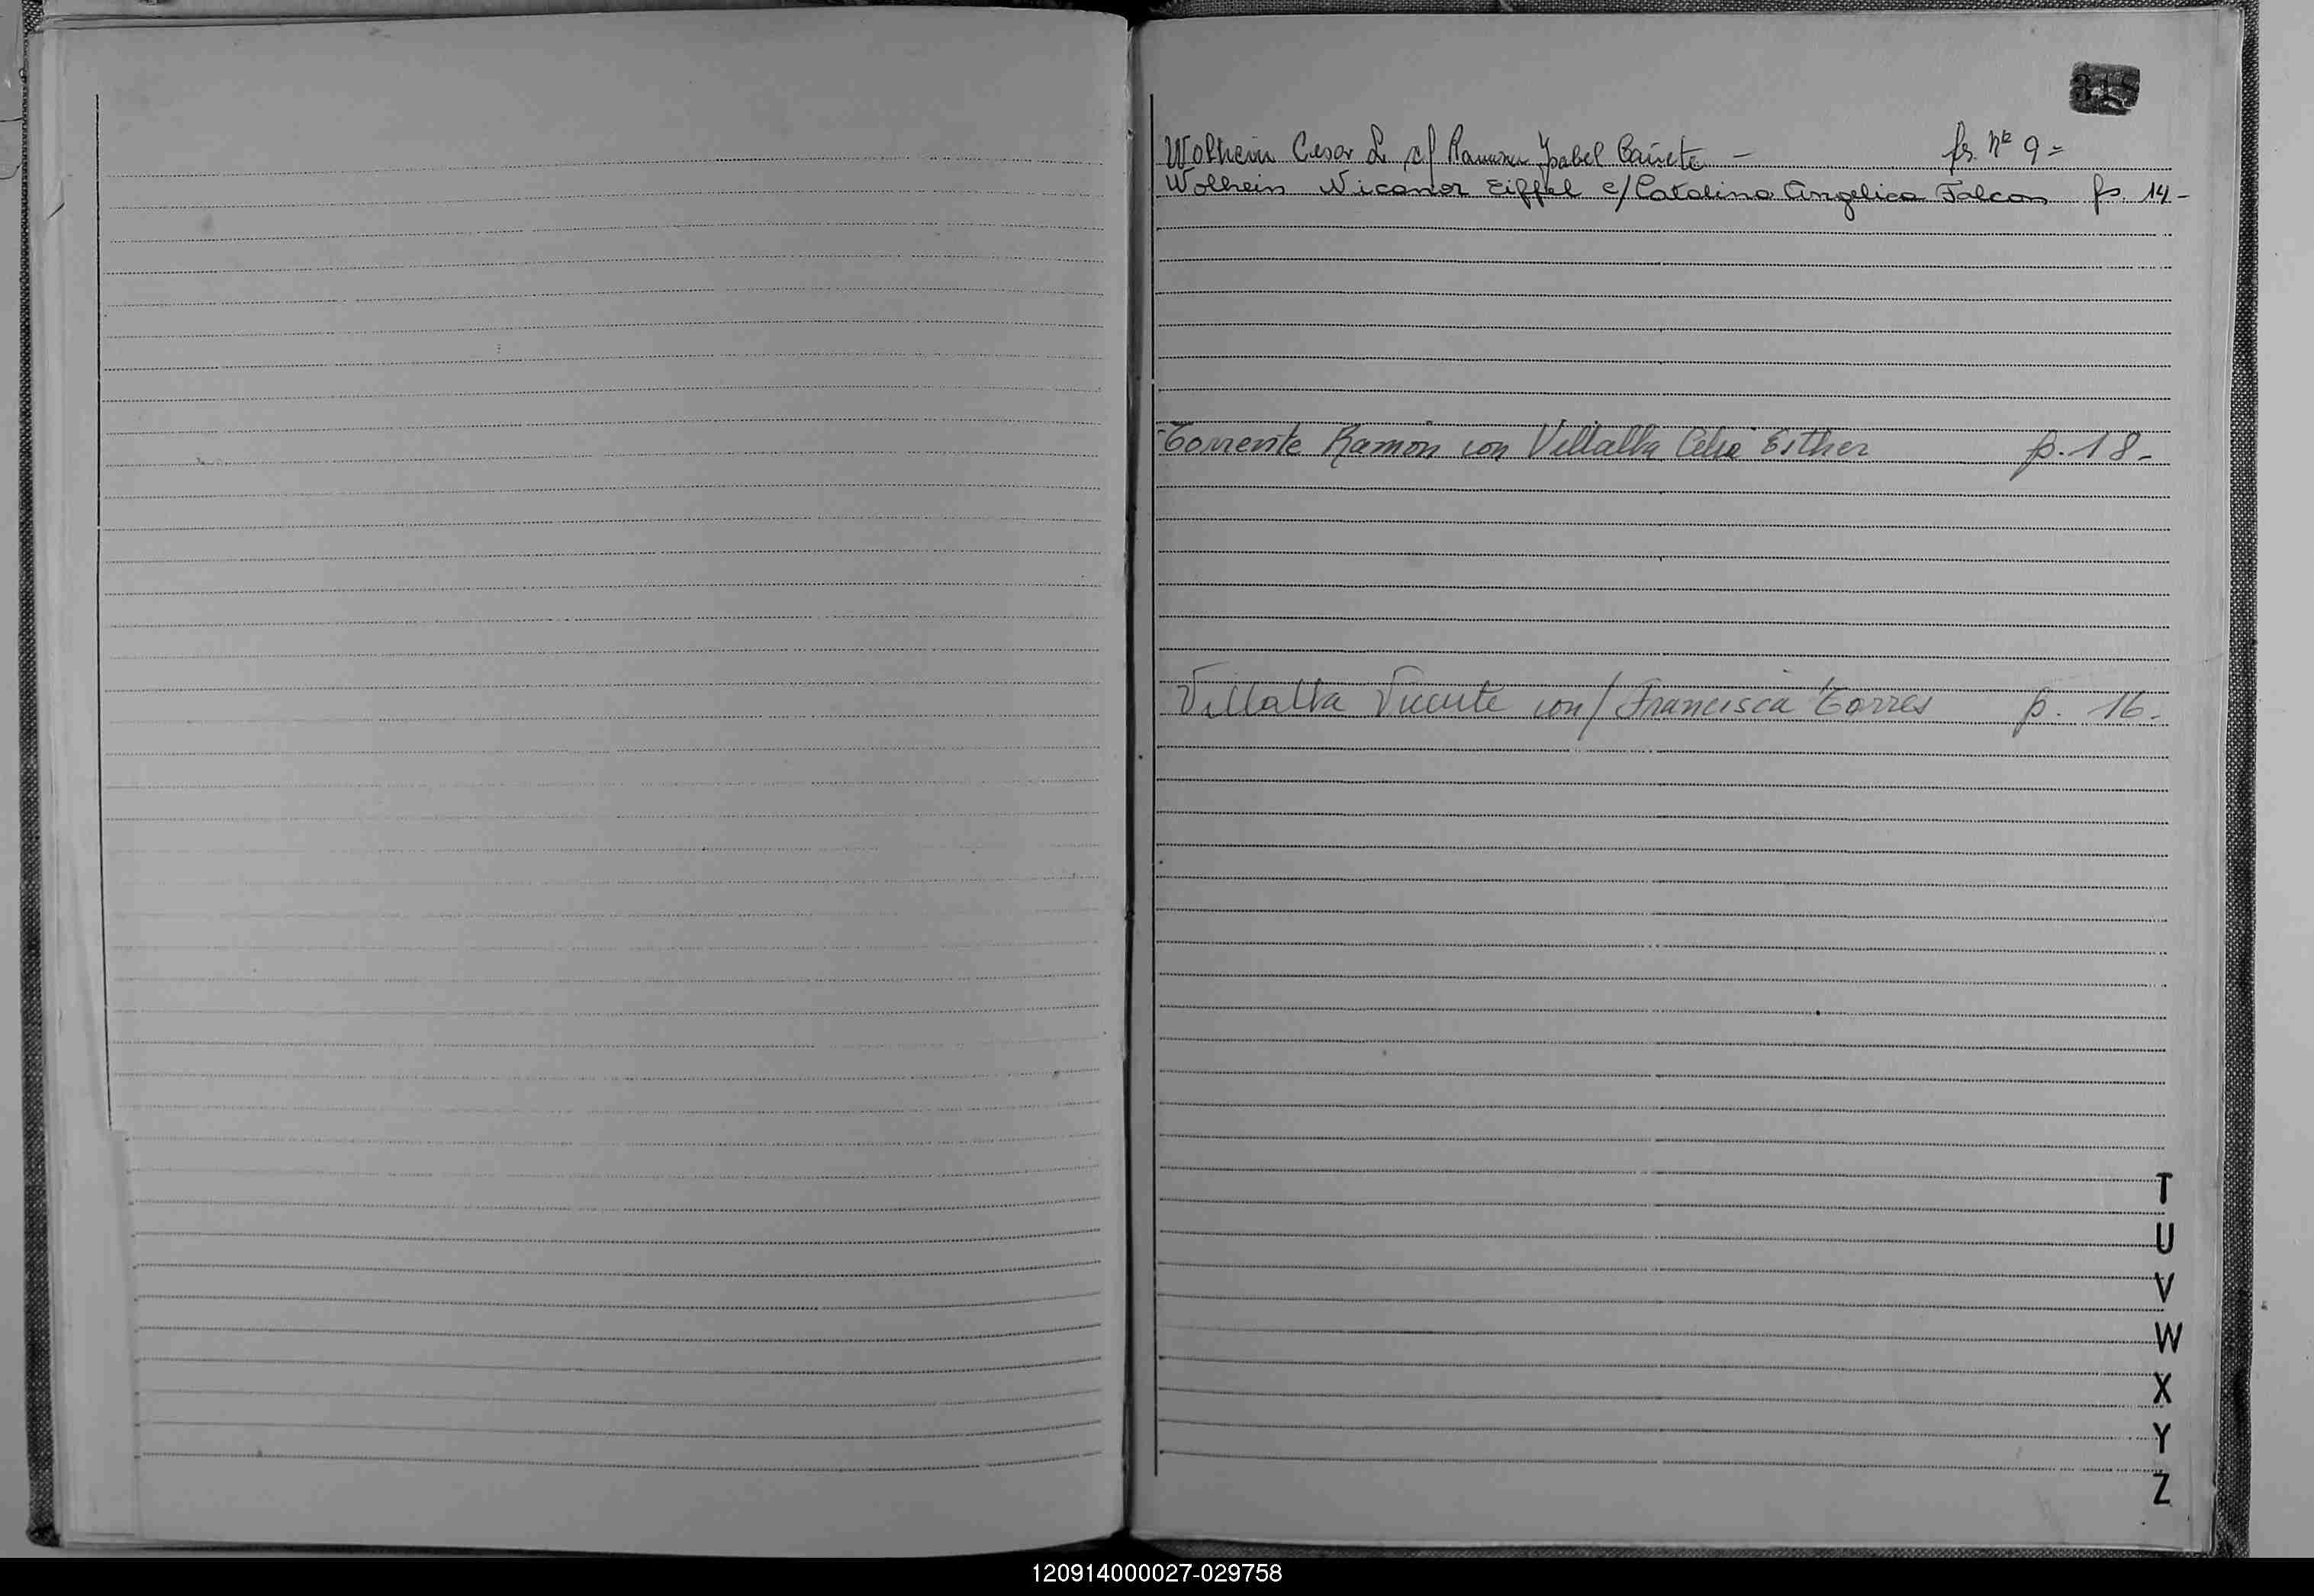 Wolhein Cesar L. c/ Ramona Ysabel Cañete — fs. Nº 9=
Wolhein Nicanor Eiffel c/ Catalina Angelica Falcon fs. 14-
Torrente Ramón con Villalba Celia Esther fs. 18-
Villalba Vicente con/ Francisca Torres fs. 16-
T
U
V
W
X
Y
Z
120914000027-029758